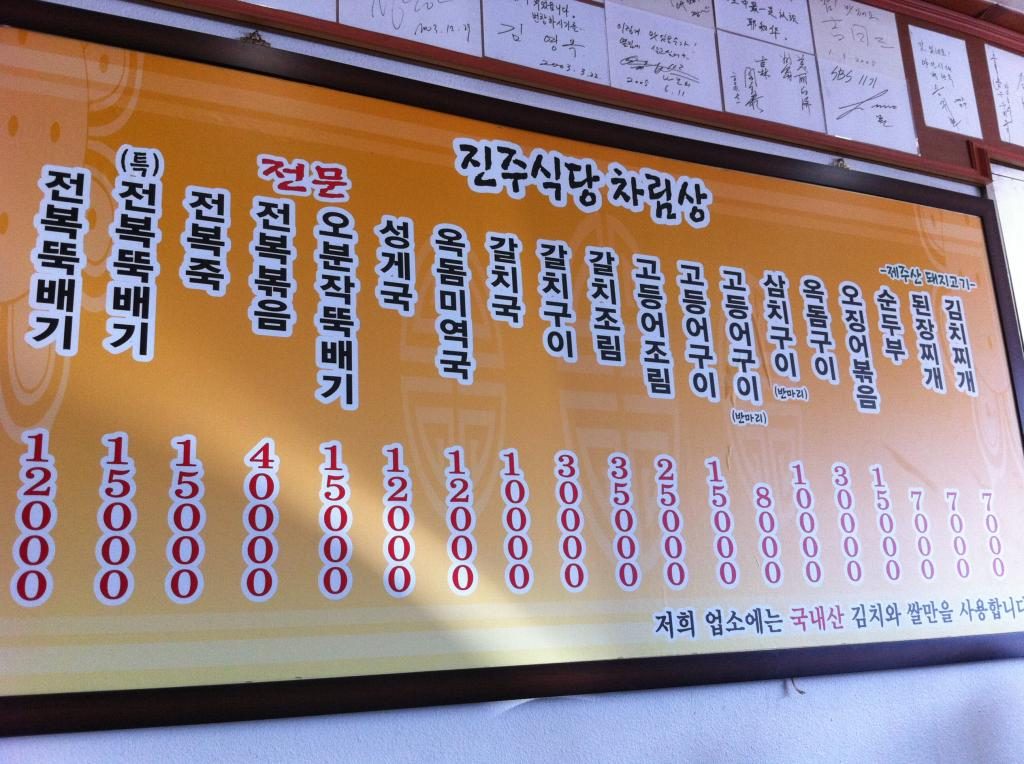 2003.12.21
번창하시기를..
김영욱
2003.3.22
2005 6.11
耶和华.
吉林
SBS 11기
진주식당 차림상
전문
전복뚝배기 12000
(특)전복뚝배기 15000
전복죽 15000
전복볶음 40000
오분작뚝배기 15000
성게국 12000
옥돔미역국 12000
갈치국 10000
갈치구이 30000
갈치조림 35000
고등어조림 25000
고등어구이 15000
고등어구이 (반마리) 8000
삼치구이 (반마리) 10000
옥돔구이 30000
오징어볶음 15000
-제주산 돼지고기-
순두부 7000
된장찌개 7000
김치찌개 7000
저희 업소에는 국내산 김치와 쌀만을 사용합니다